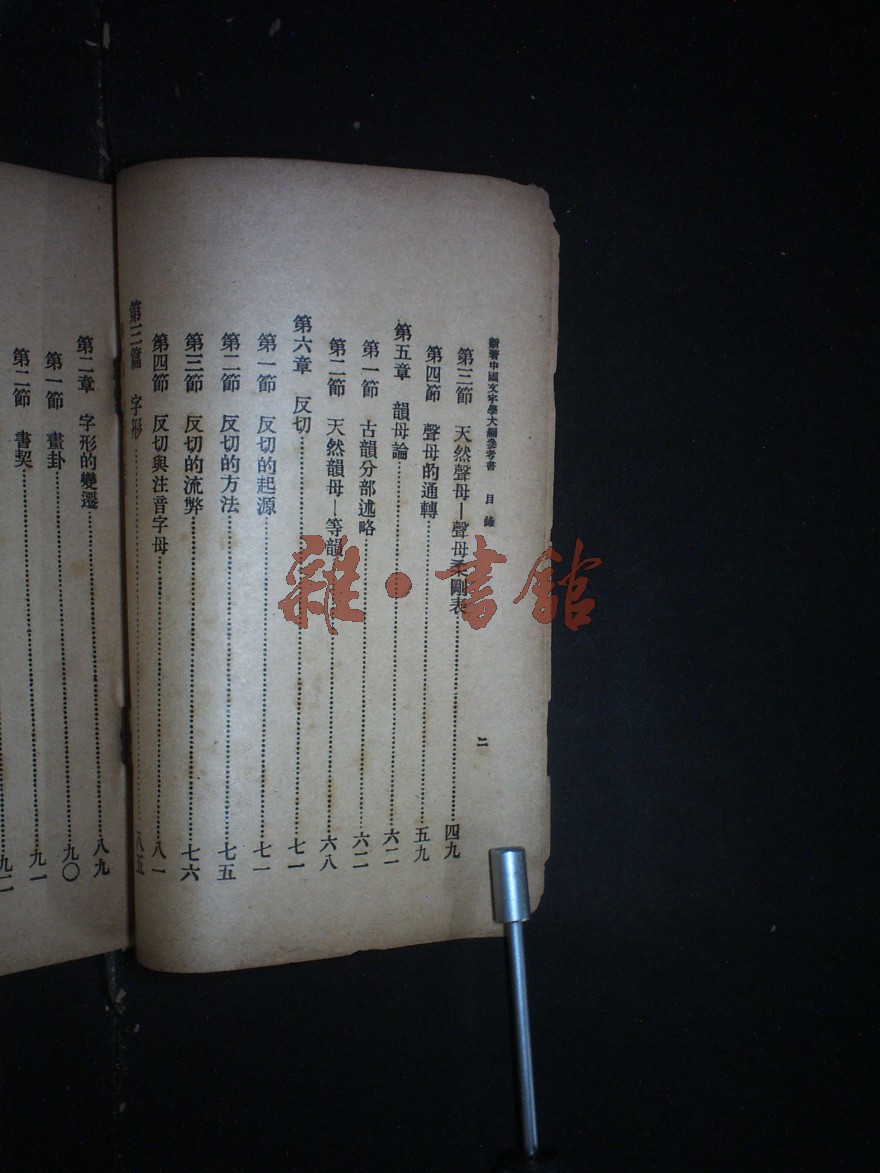 新著中國文字學大綱參考書 目錄
二
第三節 天然聲母—聲母柔剛表………四九
第四節 聲母的通轉………五九
第五章 韻母論………六二
第一節 古韻分部述略………六二
第二節 天然韻母—等韻………六八
第六章 反切………七一
第一節 反切的起源………七一
第二節 反切的方法………七五
第三節 反切的流弊………七六
第四節 反切與注音字母………八一
第三篇 字形………八五
第二章 字形的變遷………八九
第一節 畫卦………九〇
第二節 書契………九一
九二
雜·書館